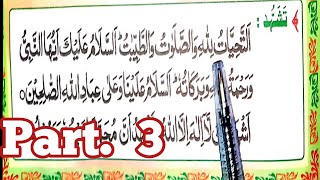 تشہد:
اَلتَّحِيَّاتُ لِلّٰهِ وَالصَّلَوٰتُ وَالطَّيِّبٰتُ اَلسَّلَامُ عَلَيْكَ اَيُّهَا النَّبِيُّ
وَرَحْمَةُ وَبَرَكَاتُهٗ اَلسَّلَامُ عَلَيْنَا وَعَلٰى عِبَادِ اللّٰهِ الصّٰلِحِيْنَ
اَشْ لَّا اِلٰهَ اِلَّا اللّٰهُ
Part. 3